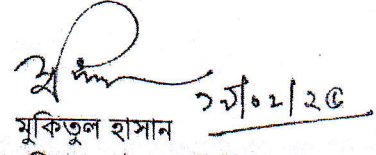 ১৮/০২/২৫
মুকিতুল হাসান